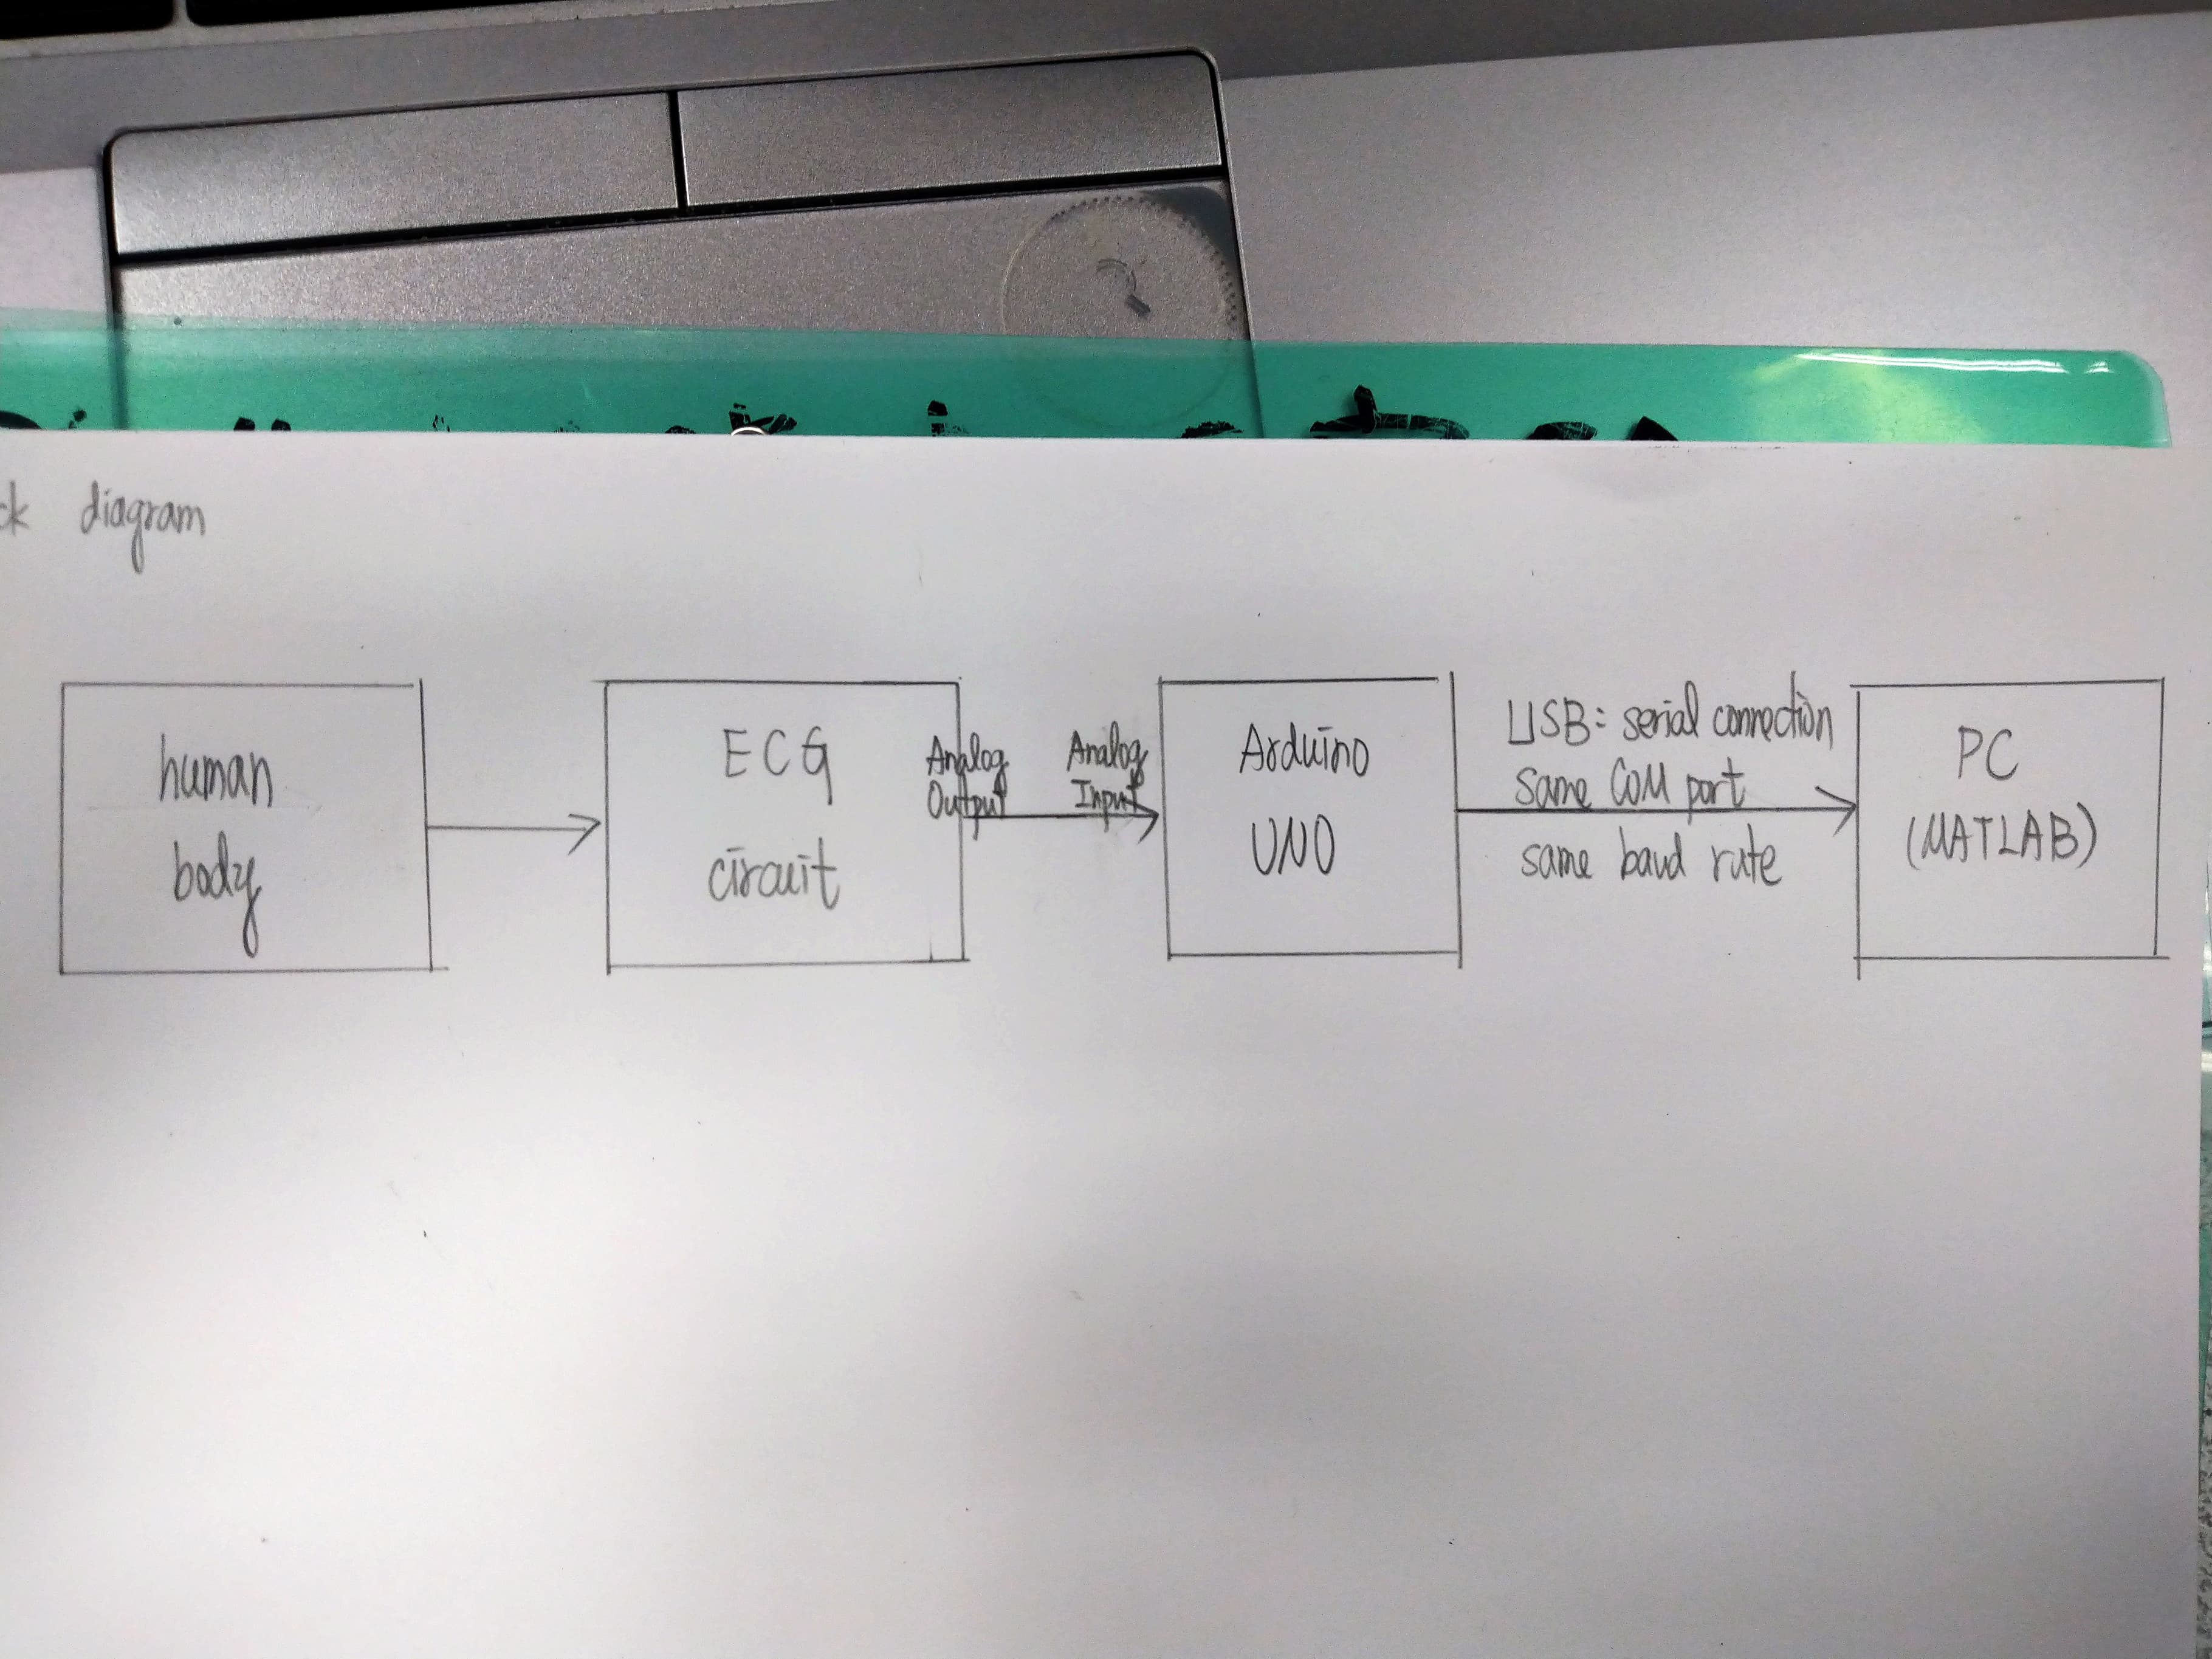 ck diagram
human
body
ECG
circuit
Analog
Output
Analog
Input
Arduino
UNO
USB: serial connection
same COM port
same baud rate
PC
(MATLAB)